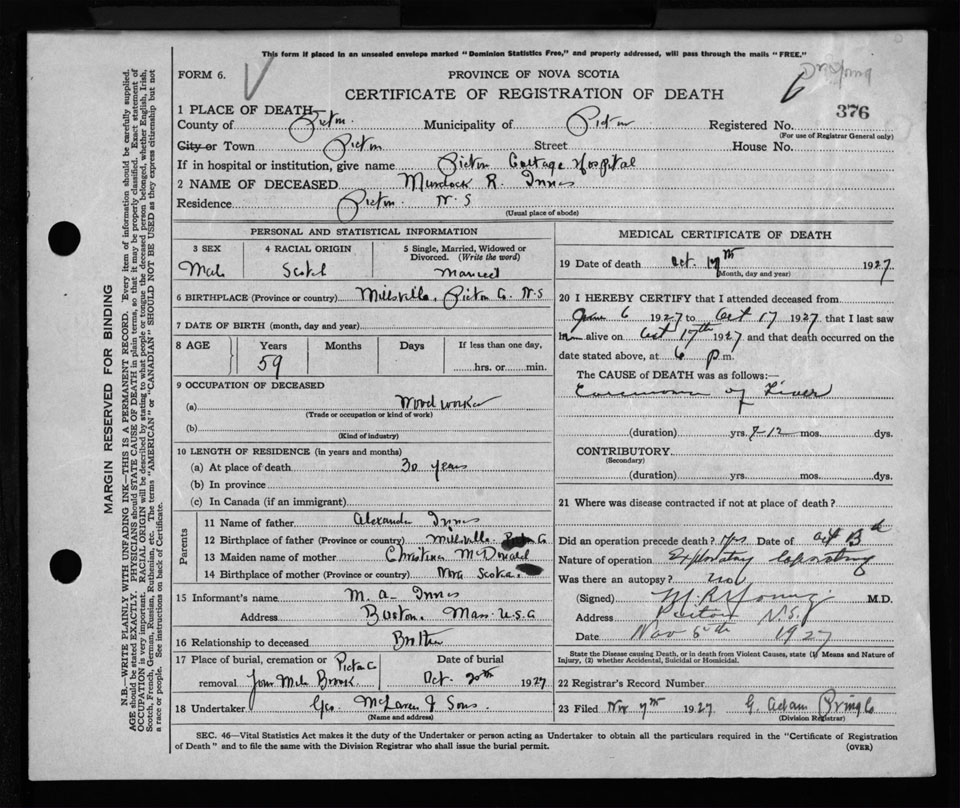 This form if placed in an unsealed envelope marked "Dominion Statistics Free," and properly addressed, will pass through the mails "FREE."
FORM 6.
PROVINCE OF NOVA SCOTIA
Dr Young
CERTIFICATE OF REGISTRATION OF DEATH
6
376
1 PLACE OF DEATH—
County of Pictou Municipality of Pictou Registered No.
(For use of Registrar General only)
City or Town Pictou Street House No.
If in hospital or institution, give name Pictou Cottage Hospital
2 NAME OF DECEASED Murdock R. Innes
Residence Pictou N.S
(Usual place of abode)
PERSONAL AND STATISTICAL INFORMATION
3 SEX 4 RACIAL ORIGIN 5 Single, Married, Widowed or Divorced. (Write the word)
Male Scotch Married
6 BIRTHPLACE (Province or country) Millsville, Pictou Co. N.S
7 DATE OF BIRTH (month, day and year)
8 AGE Years Months Days If less than one day,
59 hrs. or min.
9 OCCUPATION OF DECEASED
(a) Wood worker
(Trade or occupation or kind of work)
(b)
(Kind of industry)
10 LENGTH OF RESIDENCE (in years and months)
(a) At place of death 30 years
(b) In province
(c) In Canada (if an immigrant)
Parents
11 Name of father Alexander Innes
12 Birthplace of father (Province or country) Millsville Pictou Co
13 Maiden name of mother Christina McDonald
14 Birthplace of mother (Province or country) Nova Scotia
15 Informant's name M. A. Innes
Address Boston, Mass U.S.A
16 Relationship to deceased Brother
17 Place of burial, cremation or removal Pictou Co Four Mile Brook
Date of burial
Oct. 20th 1927
18 Undertaker Geo. McLaren & Sons.
(Name and address)
MEDICAL CERTIFICATE OF DEATH
19 Date of death Oct. 17th 1927
(Month, day and year)
20 I HEREBY CERTIFY that I attended deceased from
June 6 1927 to Oct 17 1927 that I last saw
him alive on Oct 17th 1927 and that death occurred on the
date stated above, at 6 p.m.
The CAUSE of DEATH was as follows:—
Carcinoma of Liver
(duration) yrs. 7-12 mos. dys.
CONTRIBUTORY
(Secondary)
(duration) yrs. mos. dys.
21 Where was disease contracted if not at place of death?
Did an operation precede death? Yes Date of
Nature of operation Exploratory laparotomy
Was there an autopsy? no
(Signed) M R Young M.D.
Address Pictou N.S.
Date Nov 5th 1927
State the Disease causing Death, or in death from Violent Causes, state (1) Means and Nature of Injury, (2) whether Accidental, Suicidal or Homicidal.
22 Registrar's Record Number
23 Filed Nov 7th 1927 G. Adam Pringle
(Division Registrar)
SEC. 46—Vital Statistics Act makes it the duty of the Undertaker or person acting as Undertaker to obtain all the particulars required in the "Certificate of Registration
of Death" and to file the same with the Division Registrar who shall issue the burial permit.
(OVER)
MARGIN RESERVED FOR BINDING
N.B.—WRITE PLAINLY WITH UNFADING INK—THIS IS A PERMANENT RECORD. Every item of information should be carefully supplied.
AGE should be stated EXACTLY. PHYSICIANS should STATE CAUSE OF DEATH in plain terms, so that it may be properly classified. Exact statement of
OCCUPATION is very important. RACIAL ORIGIN will be described by stating to what people or tongue the deceased person belonged, whether English, Irish,
Scotch, French, German, Russian, Ruthenian, etc. The terms "AMERICAN" or "CANADIAN" SHOULD NOT BE USED as they express citizenship but not
a race or people. See instructions on back of Certificate.